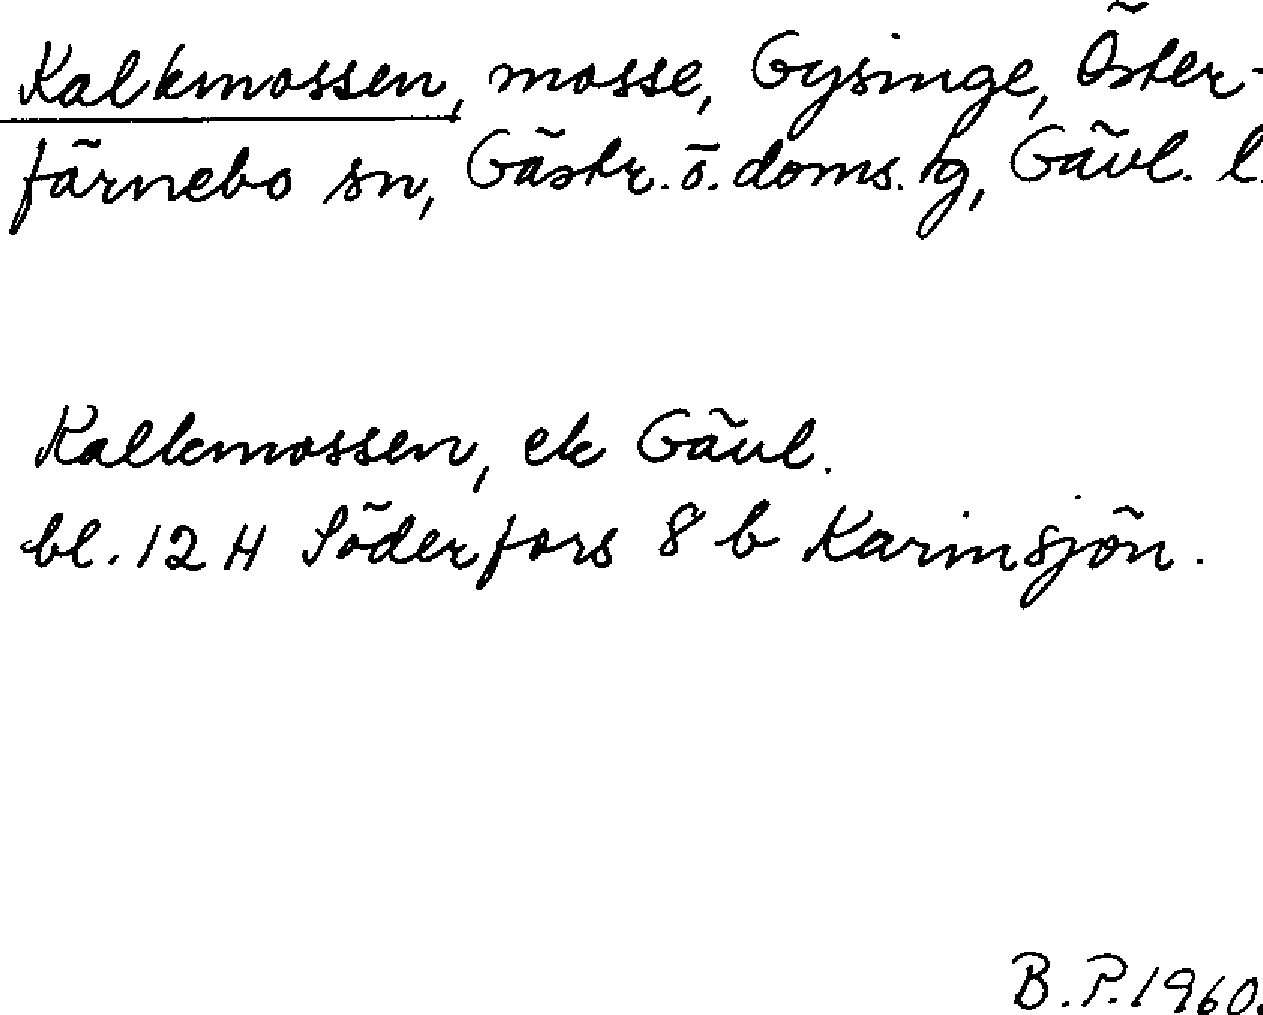 Kalkmossen, mosse, Gysinge, Öster-
färnebo sn, Gästr. ö. doms. hg, Gävl. l.
Kalkmossen, ek Gävl.
bl. 12 H Söderfors 8 b Karinsjön.
B. P. 1960.